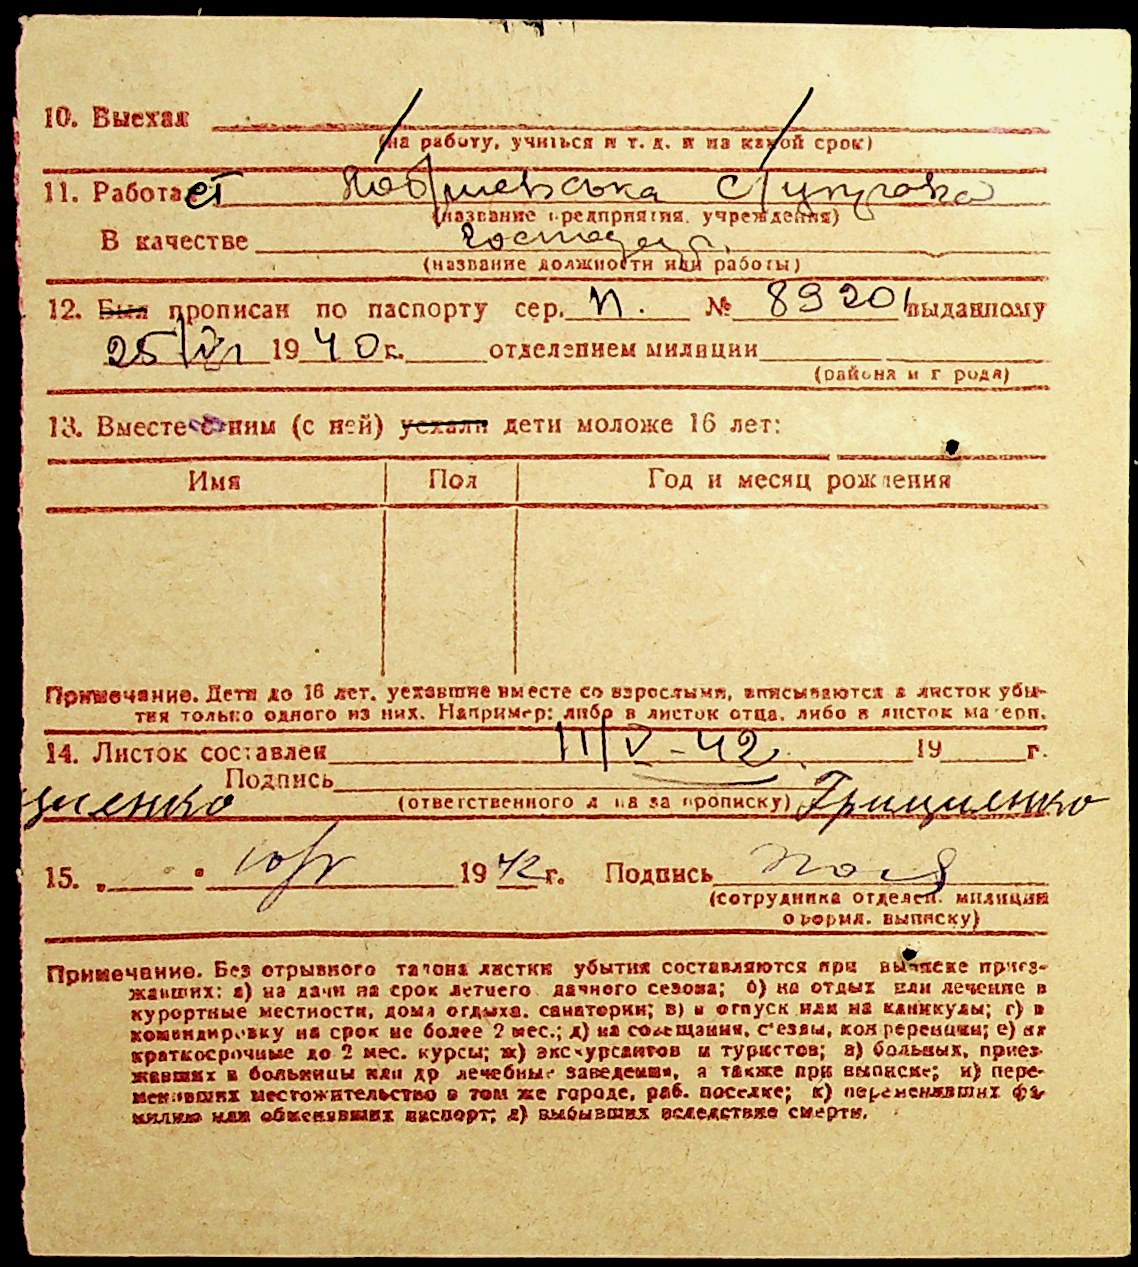 10. Выехал
(на работу, учиться и т. д. и на какой срок)
11. Работает
(название предприятия, учреждения)
В качестве
(название должности или работы)
12. Был прописан по паспорту сер. П. № 89201 выданному
25/VI 1940 г. отделением милиции
(района и города)
13. Вместе с ним (с ней) уехали дети моложе 16 лет:
Имя Пол Год и месяц рождения
Примечание. Дети до 16 лет, уехавшие вместе со взрослыми, вписываются в листок убы-
тия только одного из них. Например: либо в листок отца, либо в листок матери.
14. Листок составлен 11/V-42 19 г.
Подпись
(ответственного лица за прописку) Гриценко
ценко
15. „ " 1942 г. Подпись
(сотрудника отделен. милиции
оформл. выписку)
Примечание. Без отрывного талона листки убытия составляются при выписке приез-
жавших: а) на дачи на срок летнего дачного сезона; б) на отдых или лечение в
курортные местности, дома отдыха, санатории; в) в отпуск или на каникулы; г) в
командировку на срок не более 2 мес.; д) на совещания, с'езды, конференции; е) на
краткосрочные до 2 мес. курсы; ж) экскурсантов и туристов; з) больных, приез-
жавших в больницы или др лечебные заведения, а также при выписке; и) пере-
менивших местожительство в том же городе, раб. поселке; к) переменивших фа-
милию или обменявших паспорт; л) выбывших вследствие смерти.